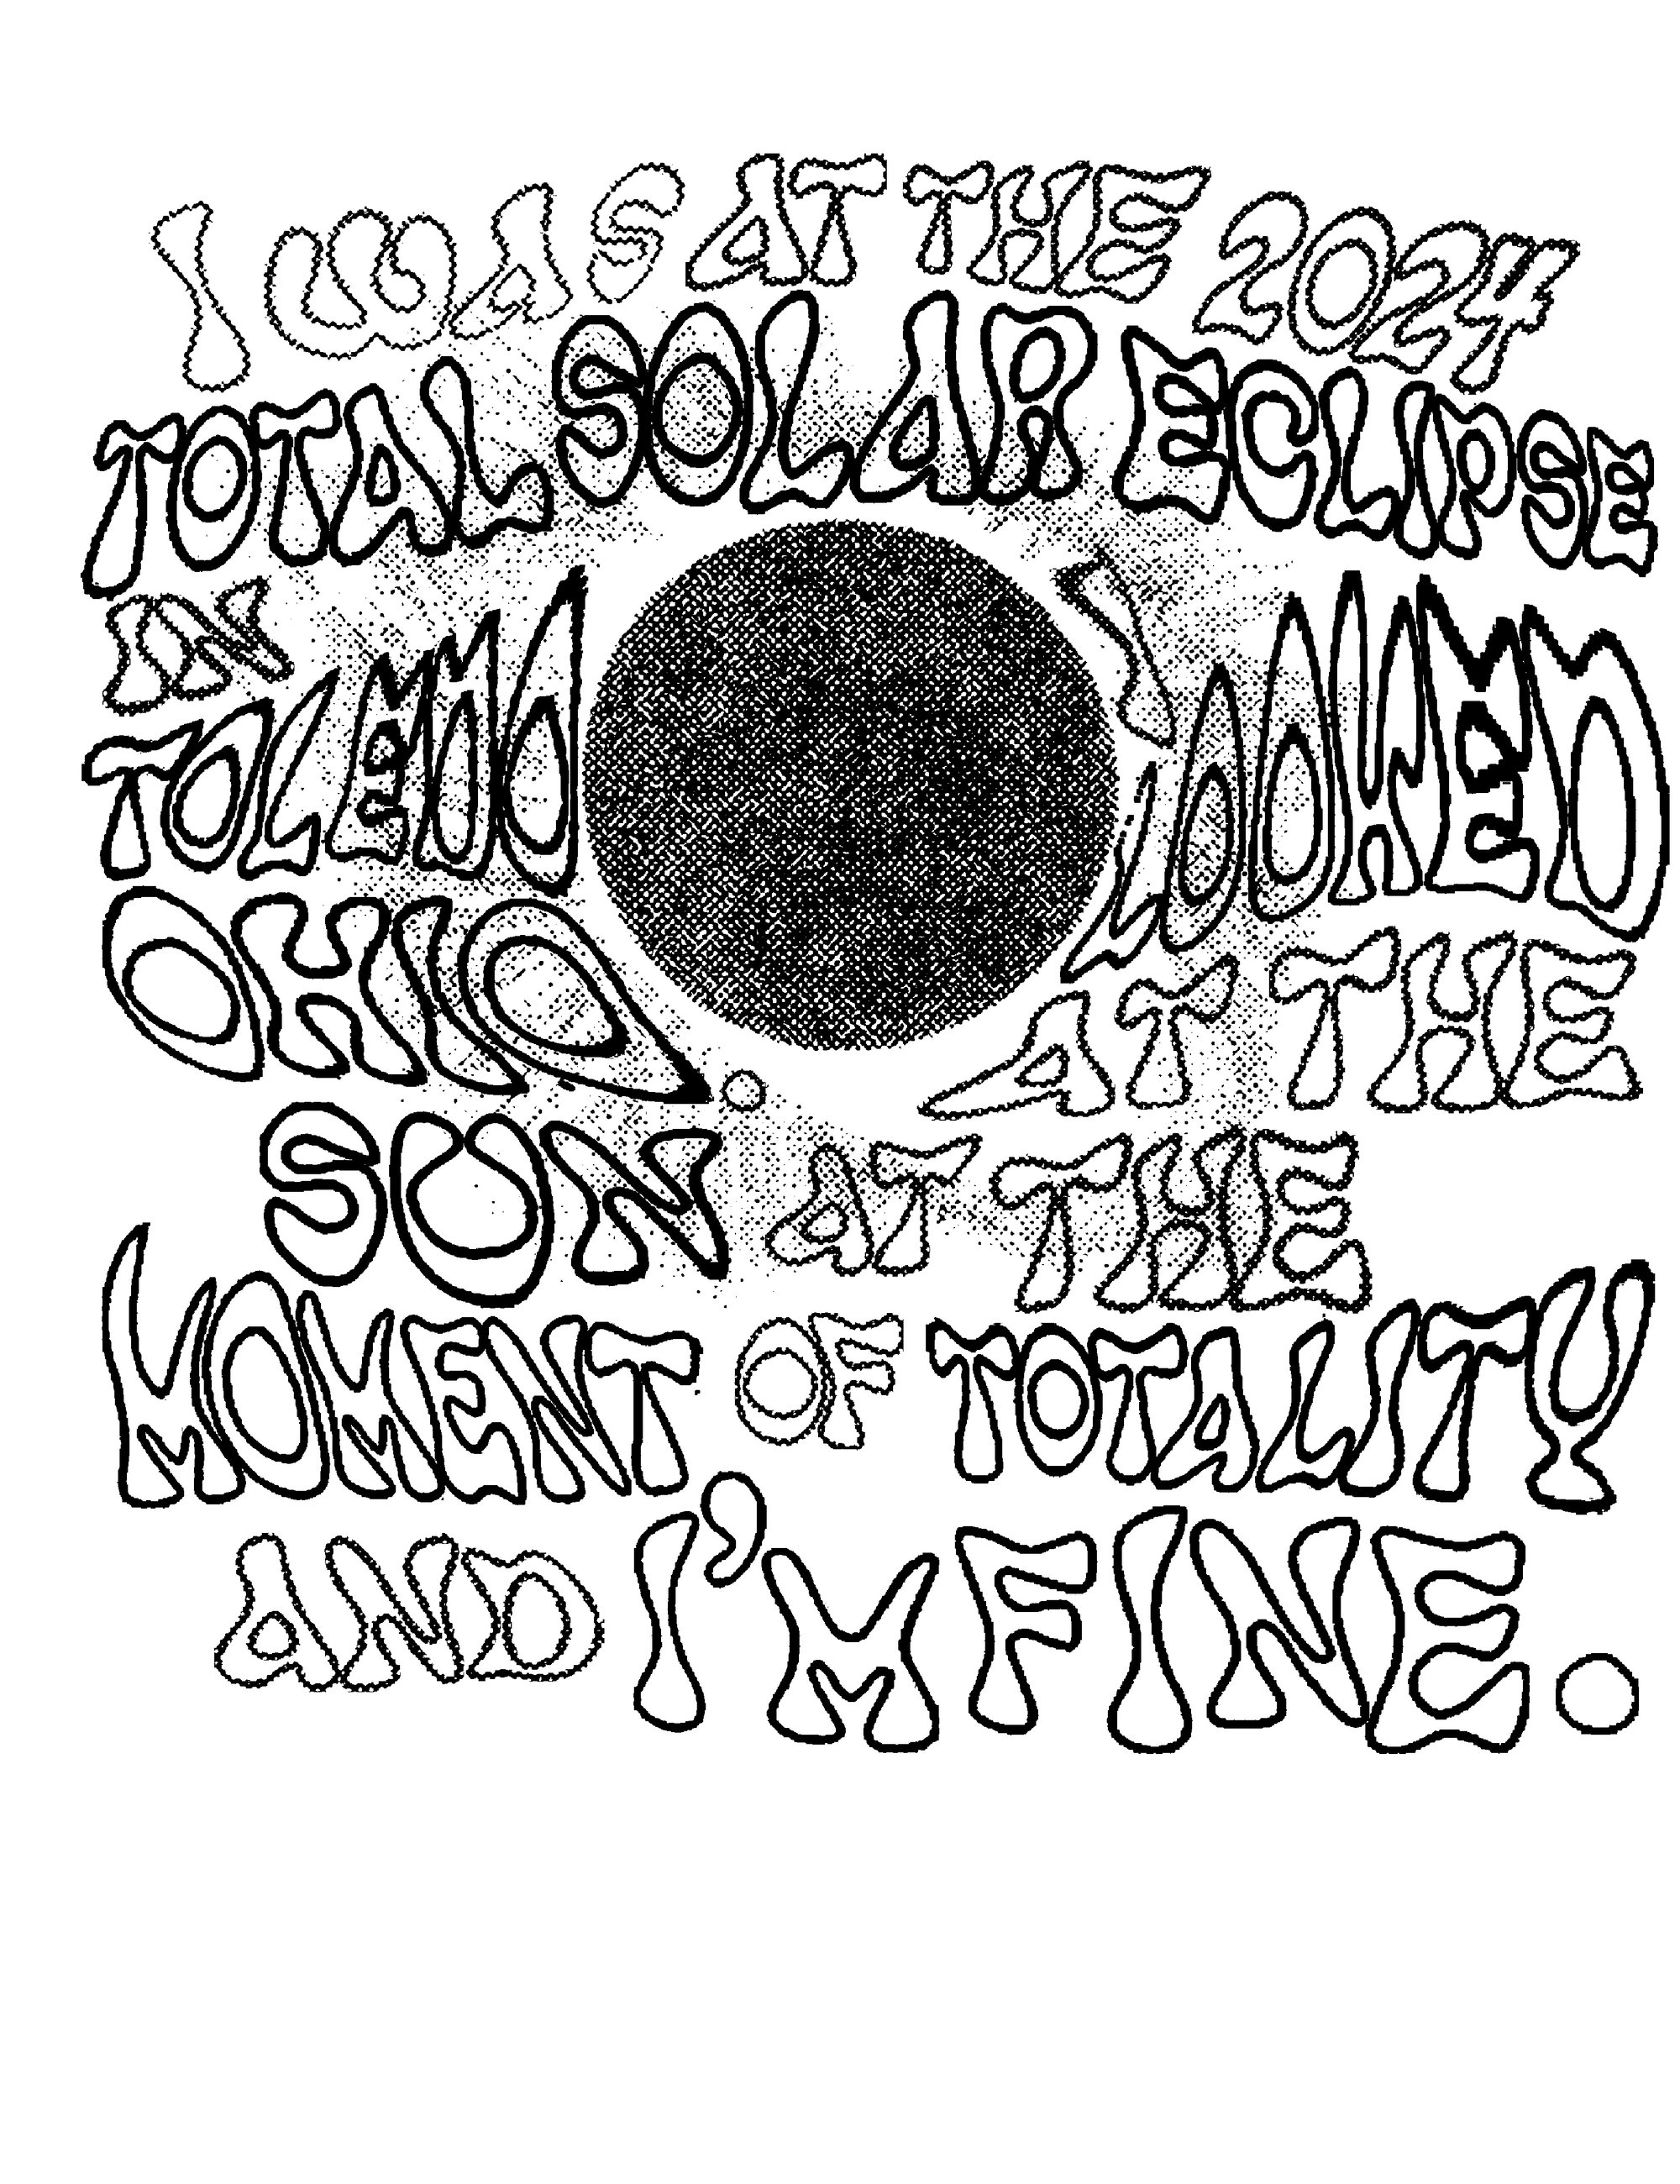 I WAS AT THE 2024
TOTAL SOLAR ECLIPSE
IN
TOLEDO
OHIO.
I
LOOKED
AT THE
SUN AT THE
MOMENT OF TOTALITY
AND I'M FINE.